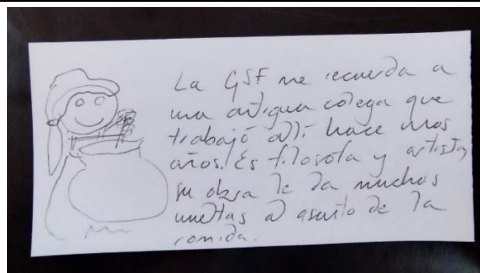 La GSF me recuerda a
una antigua colega que
trabajó allí hace unos
años. Es filósofa y artista,
su obra le da muchas
vueltas al asunto de la
comida.